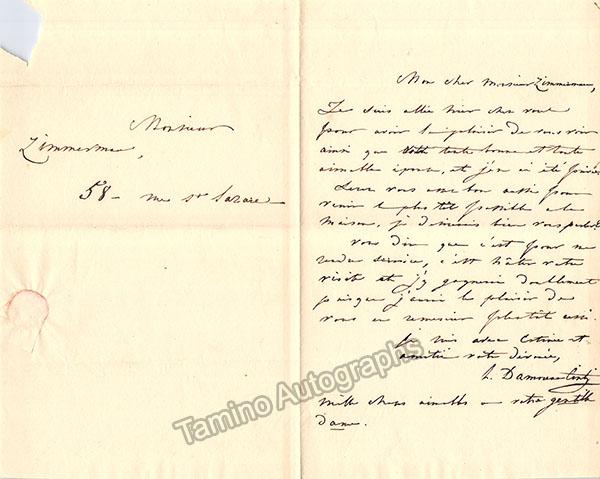 Monsieur
Zimmerman,
58 - rue St Lazare
Mon cher Monsieur Zimmerman,
Je suis allée hier chez vous
pour avoir le plaisir de vous voir
ainsi que votre toute bonne et toute
aimable épouse, et j'en ai été privée
vous bon aussi pour
venir le plus tôt possible à la
maison, je bien vous parler
vous dire que c'est pour me
rendre service, c'est hâter votre
visite et j'y gagnerai doublement
puisque j'aurai le plaisir de
vous en remercier plus tôt aussi.
Je suis avec Estime et
amitié votre dévouée,
L. Damoreau Cinti
mille choses aimables à votre gentille
dame.
Tamino Autographs